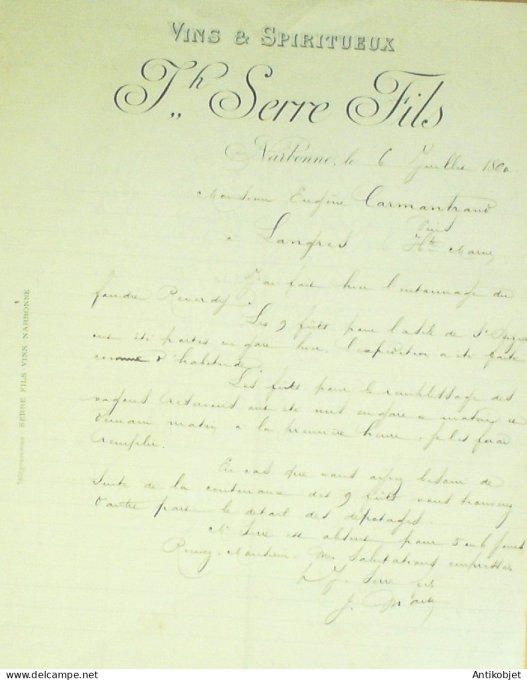 VINS & SPIRITUEUX
J.h Serre Fils
Narbonne, le 6 Juillet
Monsieur Eugène Carmantrand
à Langres Hte Marne
J'ai fait hier l'entonnage du
foudre
Les 9 fûts pour l'asile de St
ont été portés en gare hier, l'expédition a été faite
comme d'habitude.
Les fûts pour le remplissage des
wagons retournés ont été mis en gare ce matin et
demain matin à la première heure, je les ferai
remplir.
En cas que vous ayez besoin de
suite de la contenance des 9 fûts vous trouverez
d'autre part le détail des dépotages.
Mr Serre est absent pour 5 ou 6 jours
Recevez, Monsieur, mes salutations empressées
J. Serre fils
J.
Télégrammes : SERRE FILS VINS NARBONNE
Antikobjet